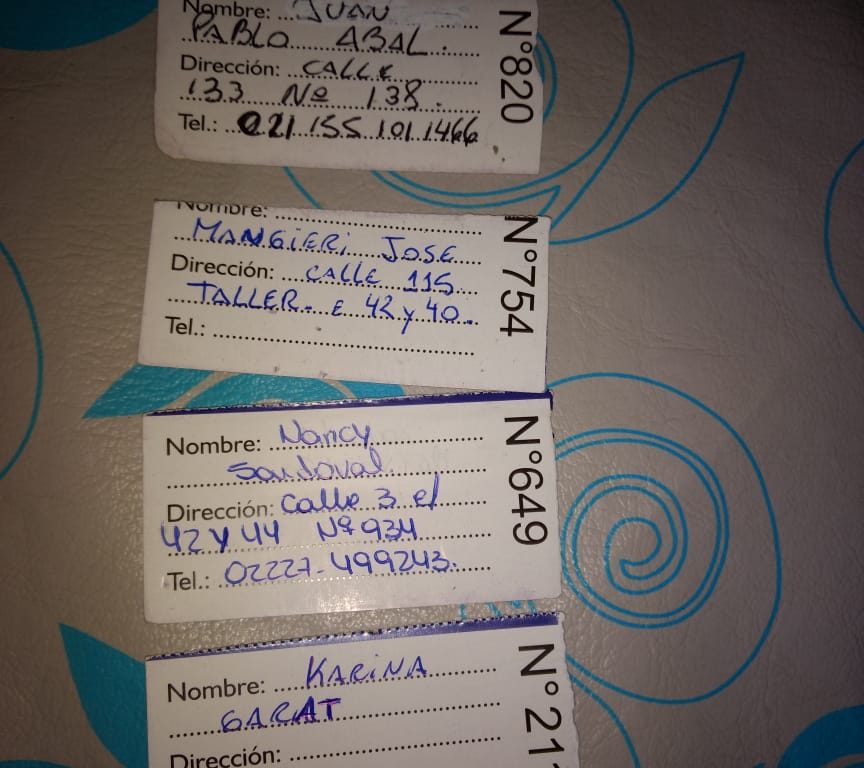 Nombre: JUAN
PABLO ABAL.
Dirección: CALLE
133 Nº 138.
Tel.: 021 155 101 1466
N°820
Nombre:
MANGIERI JOSE
Dirección: CALLE 115
TALLER. E 42 y 40.
Tel.:
N°754
Nombre: Nancy
Sandoval
Dirección: Calle 3 e/
42 y 44 Nº 934
Tel.: 02227-499243.
N°649
Nombre: KARINA
GARAT
Dirección:
N°211